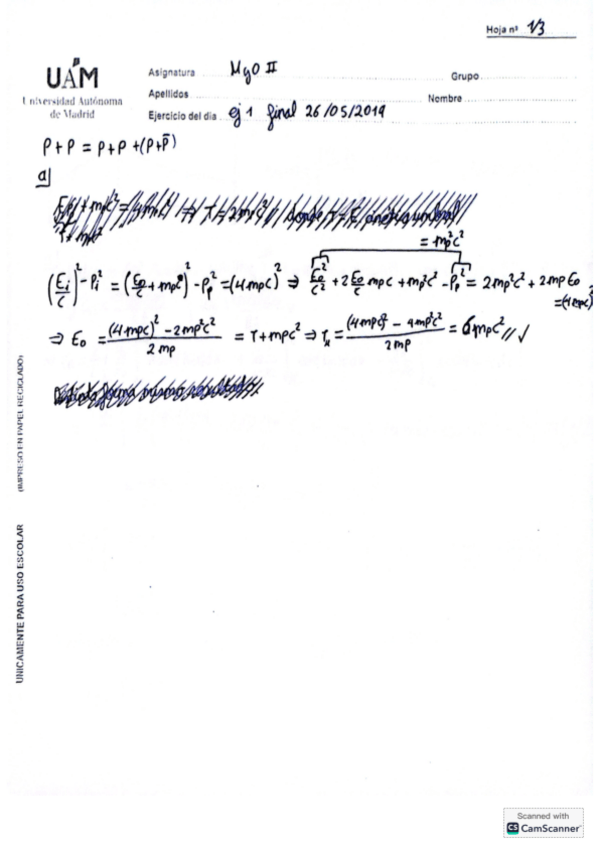 Hoja nº 1/3
UAM
Universidad Autónoma
de Madrid
Asignatura MyO II Grupo
Apellidos Nombre
Ejercicio del día ej 1 final 26/05/2019
P+P = P+P+(P+P̄)
a)
= mp²c²
(Ei/c)² - Pi² = (E0/c + mpc)² - Pp² = (4mpc)² ⇒ E0²/c² + 2 E0/c mpc + mp²c² - Pp² = 2mp²c² + 2mp E0
= (4mpc)²
⇒ E0 = ((4mpc)² - 2mp²c²)/2mp = T + mpc² ⇒ Tu = ((4mpc)² - 4mp²c²)/2mp = 6mpc² // ✓
UNICAMENTE PARA USO ESCOLAR (IMPRESO EN PAPEL RECICLADO)
Scanned with
CS CamScanner